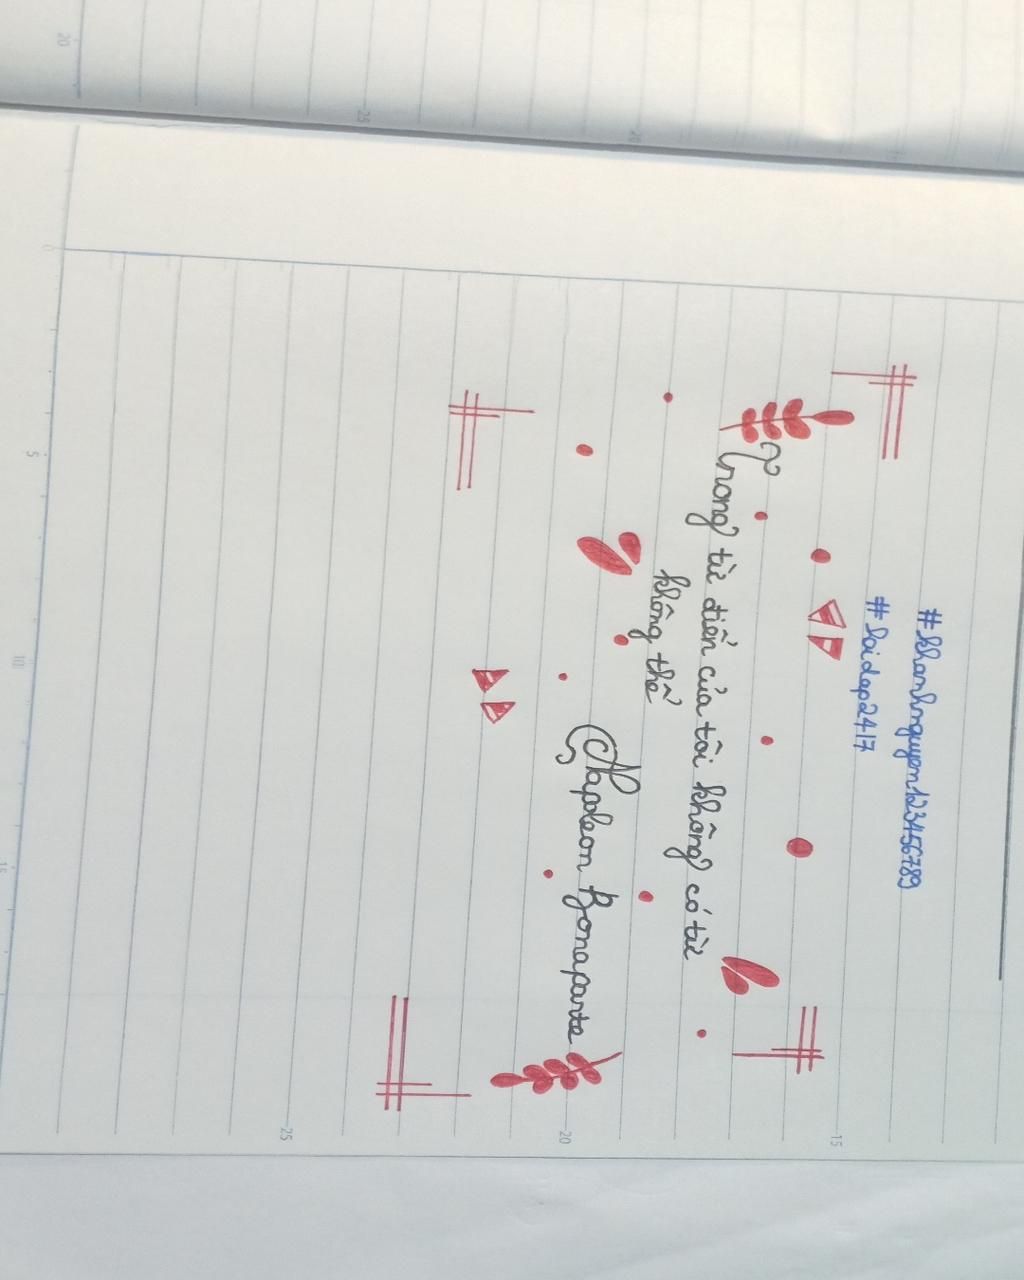 #khanhnguyen123456789
#hoidap247
Trong từ điển của tôi không có từ
không thể
Napoleon Bonaparte
15
20
25
5
10
15
0
20
25